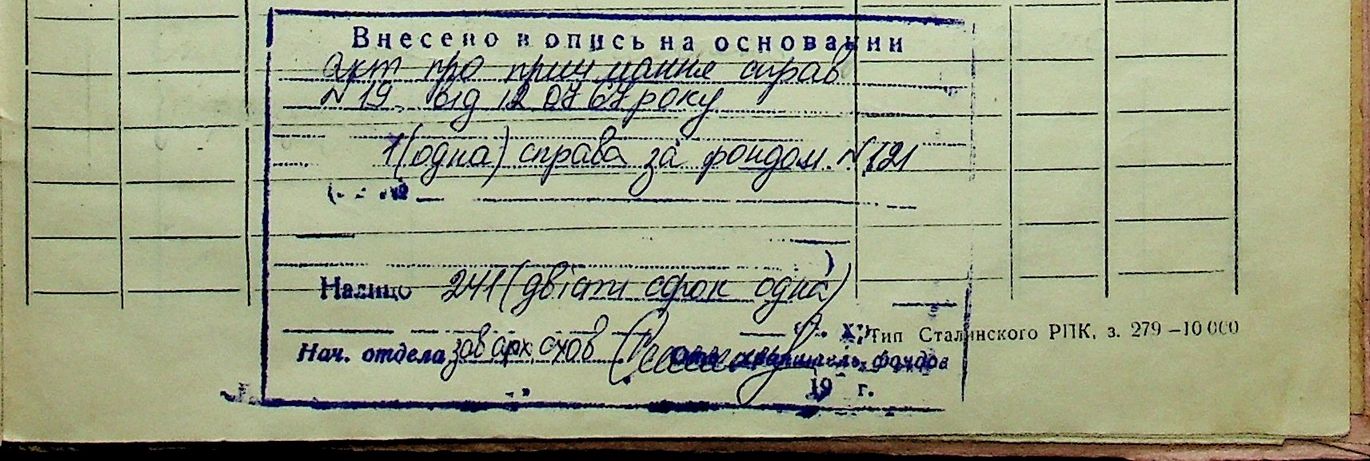 Внесено в опись на основании
акт про приймання справ
N 19 від 12 07 67 року
1 (одна) справа за фондом N 121
)
Налицо 241 (двісти сорок одна)
Тип Сталинского РПК, з. 279-10 000
Нач. отдела зав арх. схов хранитель фондов
19 г.